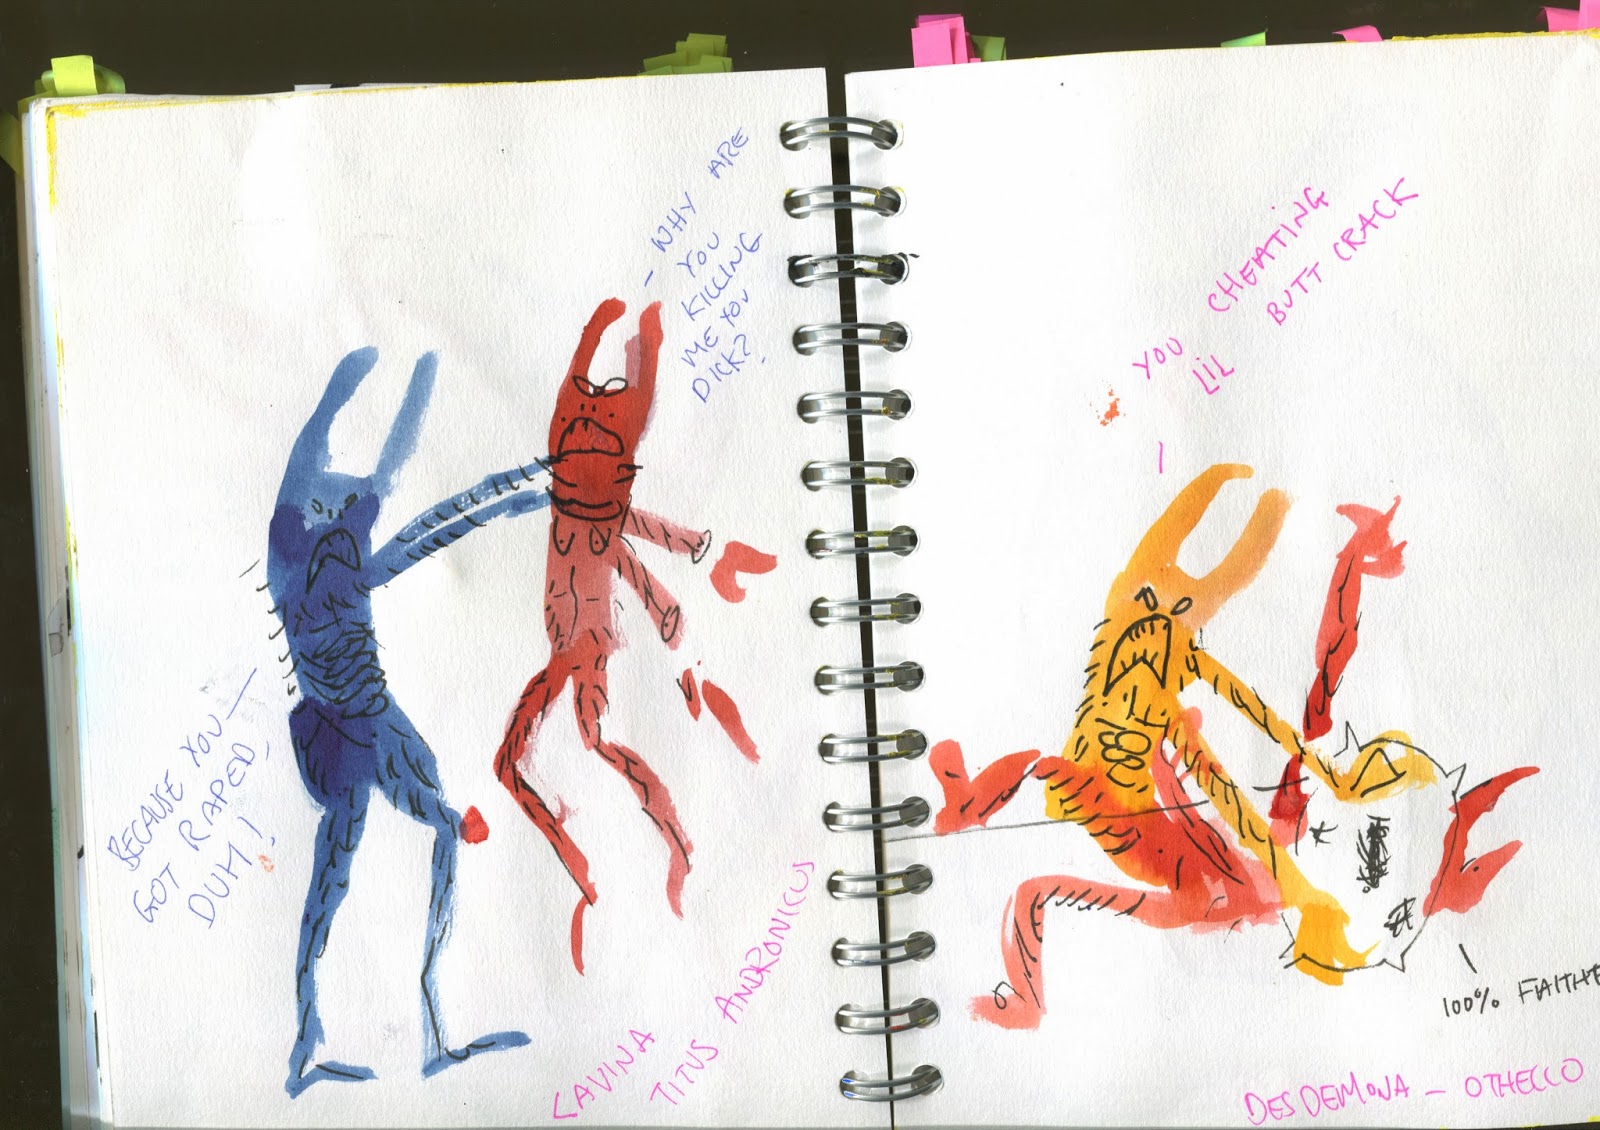 - WHY ARE
YOU
KILLING
ME YOU
DICK?
BECAUSE YOU -
GOT RAPED,
DUH!
LAVINA
TITUS ANDRONICUS
YOU CHEATING
LIL BUTT CRACK
100%
DESDEMONA - OTHELLO